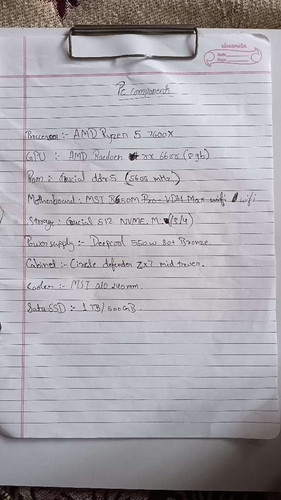 classmate
Date
Page
Pc components
Processor :- AMD Ryzen 5 7600X
GPU :- AMD Radeon RX 6600 (8gb)
Ram :- Crucial ddr5 (5600 mHz)
Motherboard :- MSI B650M Pro-VDH Max wifi
Storage :- Crucial 512 NVME M.2 (3/4)
Power supply :- Deepcool 550w 80+ Bronze.
Cabinet :- Circle defender Zx7 mid tower.
Cooler :- MSI aio 240mm.
Sata SSD :- 1 TB/500GB